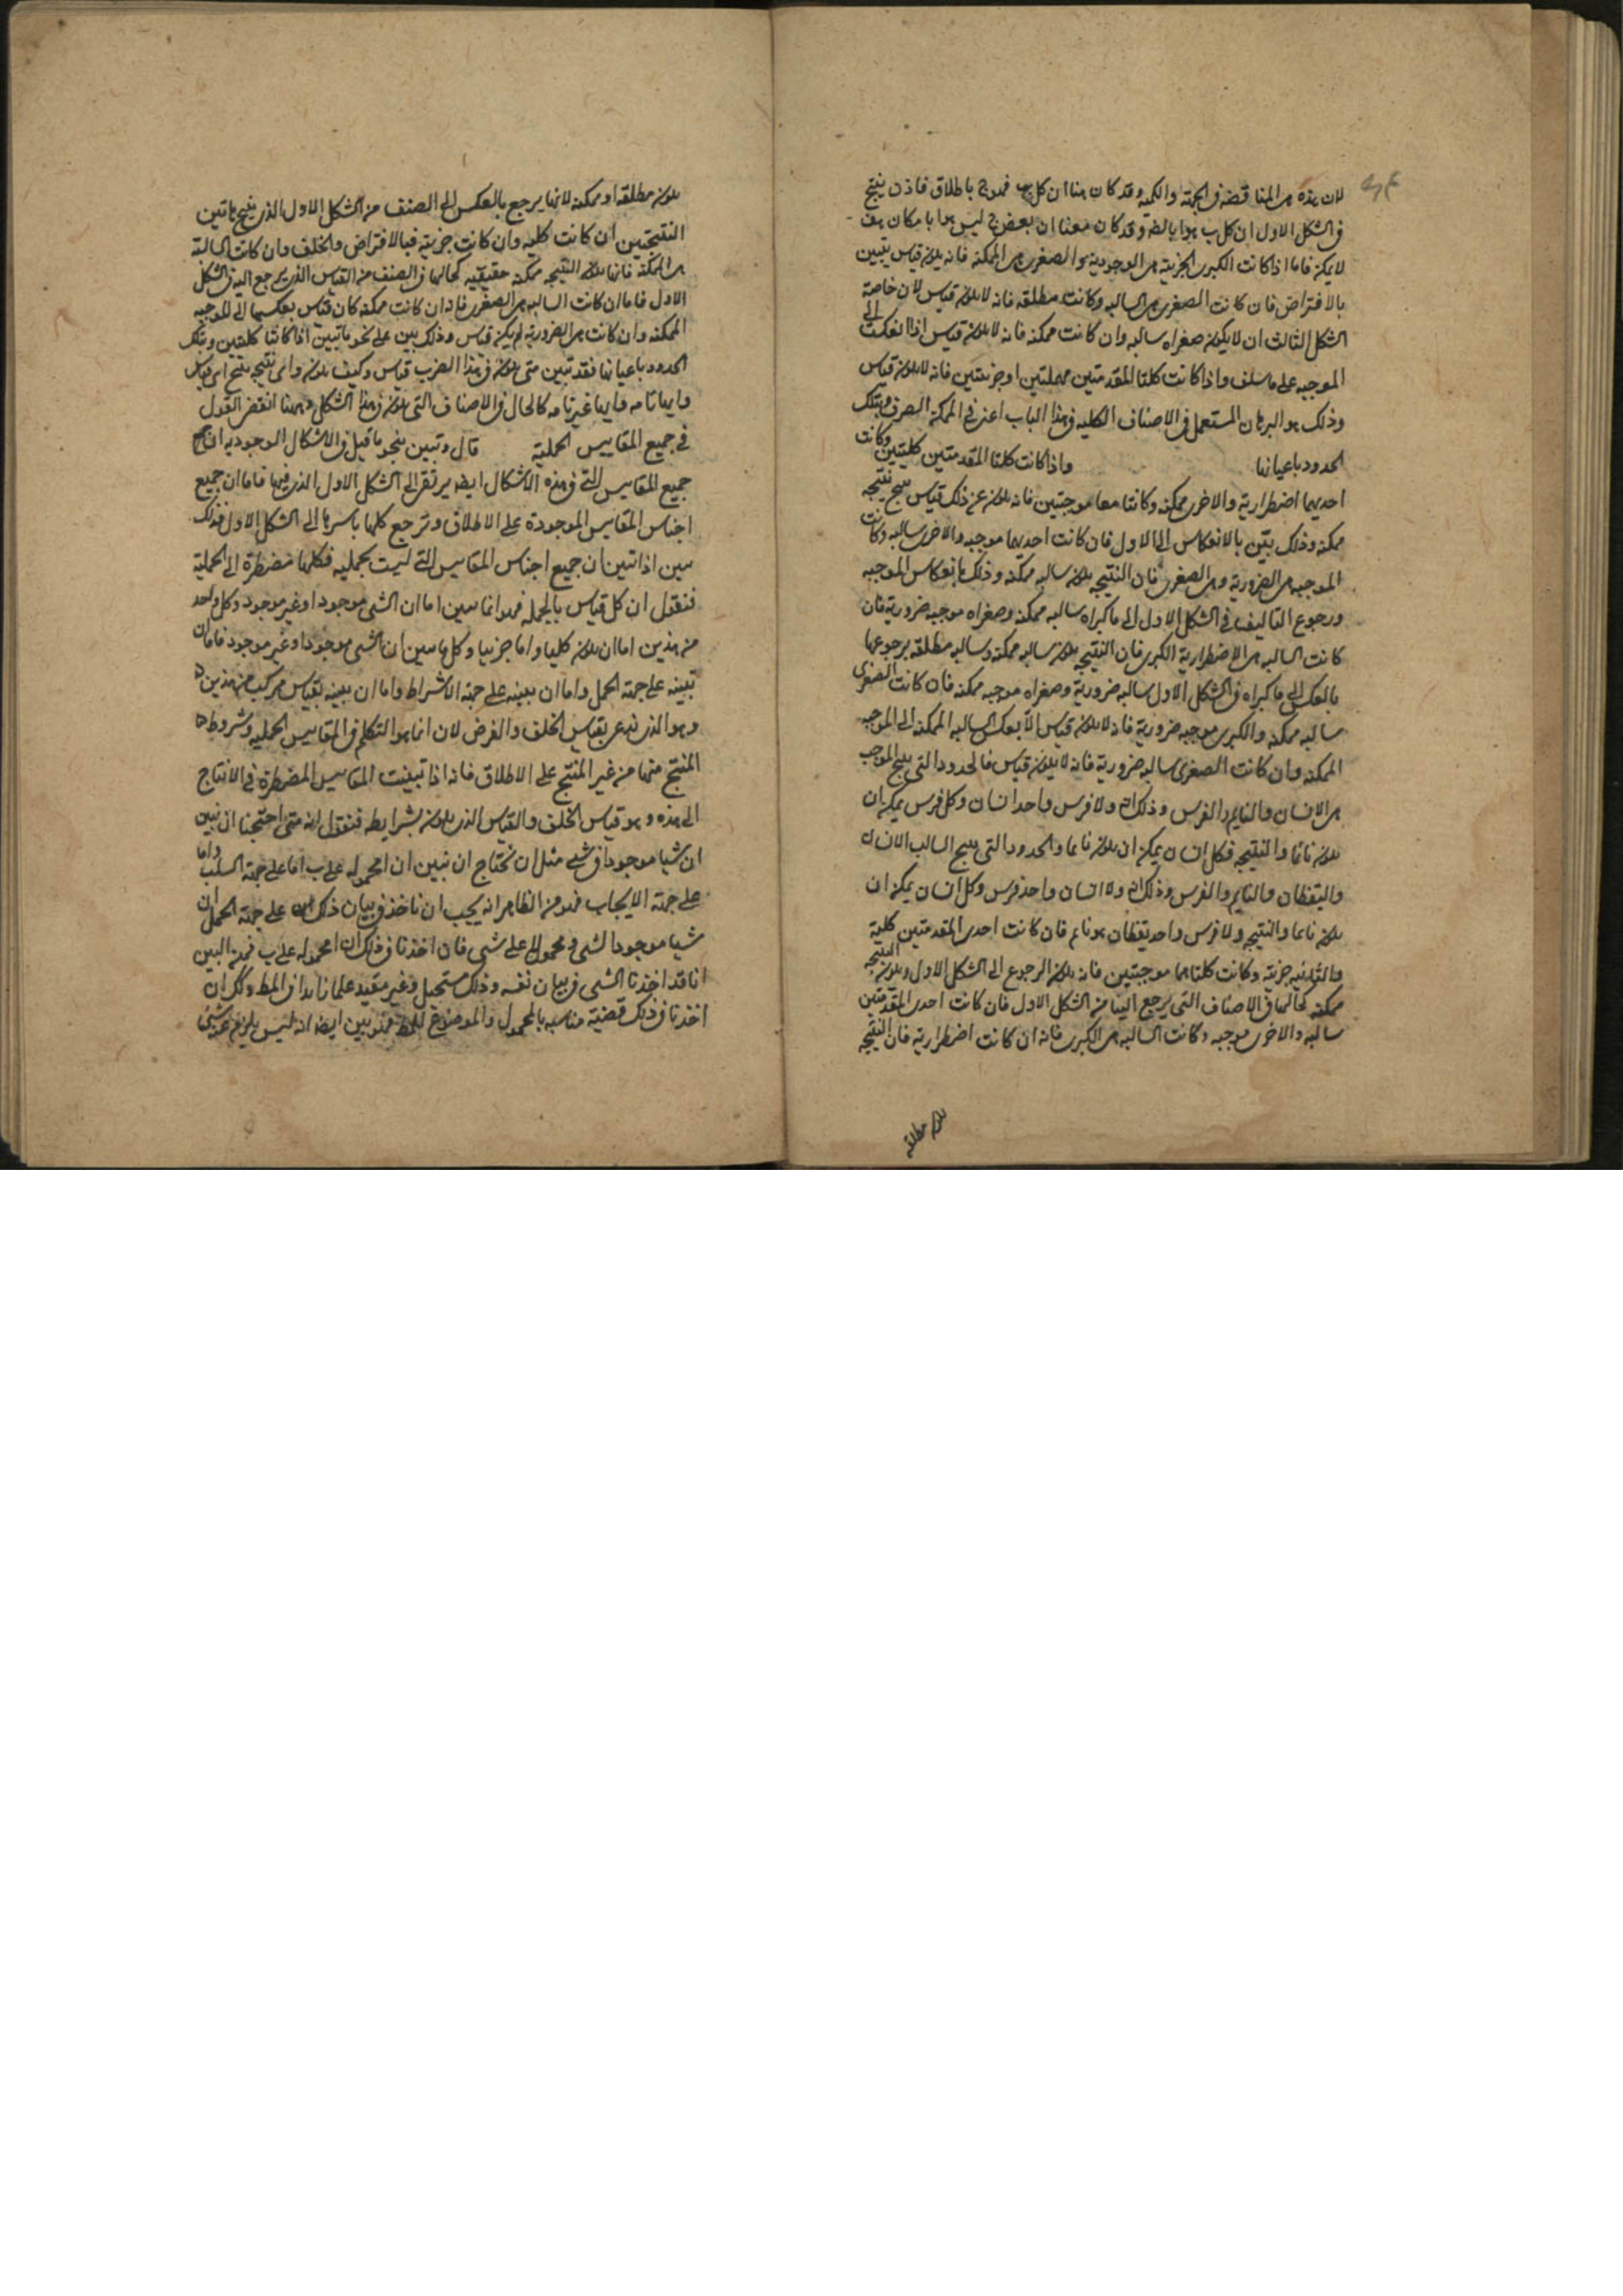 لان هذه هى المناقضة فى الجهة والكمية وقد كان هنا ان كل ب فهو ج باطلاق فاذن ينتج
فى الشكل الاول ان كل ب هو ا بالضـ وقد كان معنا ان بعض ج ليس هو ا بامكان هف
لا يمكن فاما اذا كانت الكبرى الجزية هى الوجودية والصغرى هى الممكنة فانه يكون قياس يتبين
بالافتراض فان كانت الصغرى هى السالبه وكانت مطلقه فانه لا يكون قياس لان خاصة
الشكل الثالث ان لا يكون صغراه سالبه وان كانت ممكنه فانه لا يكون قياس اذا انعكست الى
الموجبه على ما سلف واذا كانت كلتا المقدمتين مهملتين او جزيتين فانه لا يكون قياس
وذلك هو البرهان المستعمل فى الاصناف الكليه فى هذا الباب اعنى فى الممكنة الصرف وبتلك
الحدود باعيانها واذا كانت كلتا المقدمتين كليتين وكانت
احديهما اضطرارية والاخرى ممكنه وكانتا معا موجبتين فانه يكون عن ذلك قياس ينتج نتيجه
ممكنه وذلك بيّن بالانعكاس الى الاول فان كانت احديهما موجبه والاخرى سالبه وكانت
الموجبه هى الضرورية وهى الصغرى فان النتيجه يكون سالبه ممكنه وذلك بانعكاس الموجبه
ورجوع التاليف فى الشكل الاول الى ما كبراه سالبه ممكنه وصغراه موجبه ضرورية فان
كانت السالبه هى الاضطرارية الكبرى فان النتيجه يكون سالبه ممكنه وسالبه مطلقه برجوعها
بالعكس الى ما كبراه فى الشكل الاول سالبه ضرورية وصغراه موجبه ممكنه فان كانت الصغرى
سالبه ممكنه والكبرى موجبه ضرورية فانه لا يكون قياس الا بعكس السالبه الممكنه الى الموجبه
الممكنه وان كانت الصغرى سالبه ضرورية فانه لا يكون قياس فالحدود التى ينتج الموجب
هى الانسان والنايم والفرس وذلك انه ولا فرس واحد انسان وكل فرس يمكن ان
يكون نائما والنتيجه فكل انسان يمكن ان يكون نائما والحدود التى ينتج السالب الانسان
واليقظان والنايم والفرس وذلك انه ولا انسان واحد فرس وكل انسان يمكن ان
يكون نائما والنتيجه ولا فرس واحد يقظان هو نايم فان كانت احدى المقدمتين كلية
والثانيه جزية وكانت كلتاهما موجبتين فانه يكون الرجوع الى الشكل الاول ويكون النتيجه
ممكنه كحالها فى الاصناف التى يرجع اليها من الشكل الاول فان كانت احدى المقدمتين
سالبه والاخرى موجبه وكانت السالبه هى الكبرى فانه ان كانت اضطرارية فان النتيجه
يكون مطلقه
يكون مطلقه او ممكنه لانها يرجع بالعكس الى الصنف من الشكل الاول الذى ينتج هاتين
النتيجتين ان كانت كليه وان كانت جزيته فبالافتراض والخلف وان كانت السالبة
هى الممكنة فانها يكون النتيجه ممكنه حقيقيه كحالها فى الصنف من القياس الذى يرجع اليه فى الشكل
الاول فاما ان كانت السالبه هى الصغرى فانه ان كانت ممكنه كان قياس بعكسها الى الموجبه
الممكنه وان كانت هى الضرورية لم يكن قياس وذلك بين على نحو ما تبين اذا كانتا كليتين وبتلك
الحدود باعيانها فقد تبين متى يكون فى هذا الضرب قياس وكيف يكون واى نتيجه ينتج اى قياس
وايها تامه وايها غير تامه كالحال فى الاصناف التى يكون فى هذا الشكل وههنا انقضى القول
فى جميع المقاييس الحملية قال وتبين بنحو ما قيل فى الاشكال الوجوديه ان
جميع المقاييس التى فى هذه الاشكال ايضه يرتقى الى الشكل الاول الذى فيها فاما ان جميع
اجناس المقاييس الموجودة على الاطلاق وترجع كلها باسرها الى الشكل الاول فذلك
يتبين اذا تبين ان جميع اجناس المقاييس التى ليست بحمليه فكلها مضطرة الى الحملية
فنقول ان كل قياس بالجمله فهو انما يبين اما ان الشى موجود او غير موجود وكل واحد
من هذين اما ان يكون كليا واما جزييا وكل ما يبين ان الشى موجودا وغير موجود فاما ان
تبينه على جهة الحمل واما ان يبينه على جهة الاشراط واما ان يبينه بقياس مركب من هذين
وهو الذى يدعى بقياس الخلف والغرض لان انما هو التكلم فى المقاييس الحمليه وشروط
المنتج منها من غير المنتج على الاطلاق فانه اذا تبينت المقاييس المضطرة فى الانتاج
الى هذه وهو قياس الخلف والقياس الذى يكون بشرايطه فنقول انه متى احتجنا ان نبين
ان شيا موجودا فى شى مثل ان نحتاج ان نبين ان ا محموله على ب اما على جهة السلب واما
على جهة الايجاب فهو من الظاهر انه يجب ان ناخذ فى بيان ذلك على جهة الحمل ان
شيا موجودا لشى ومحمولا على شى فان اخذنا فى ذلك ان ا محموله على ب فمن البين
انا قد اخذنا الشى فى بيان نفسه وذلك مستحيل وغير مفيد علما زايدا فى المط ولكن ان
اخذنا فى ذلك قضية مناسبه بالمحمول والموضوع للمط فهو بين ايضا انه ليس يلزم عنه شى